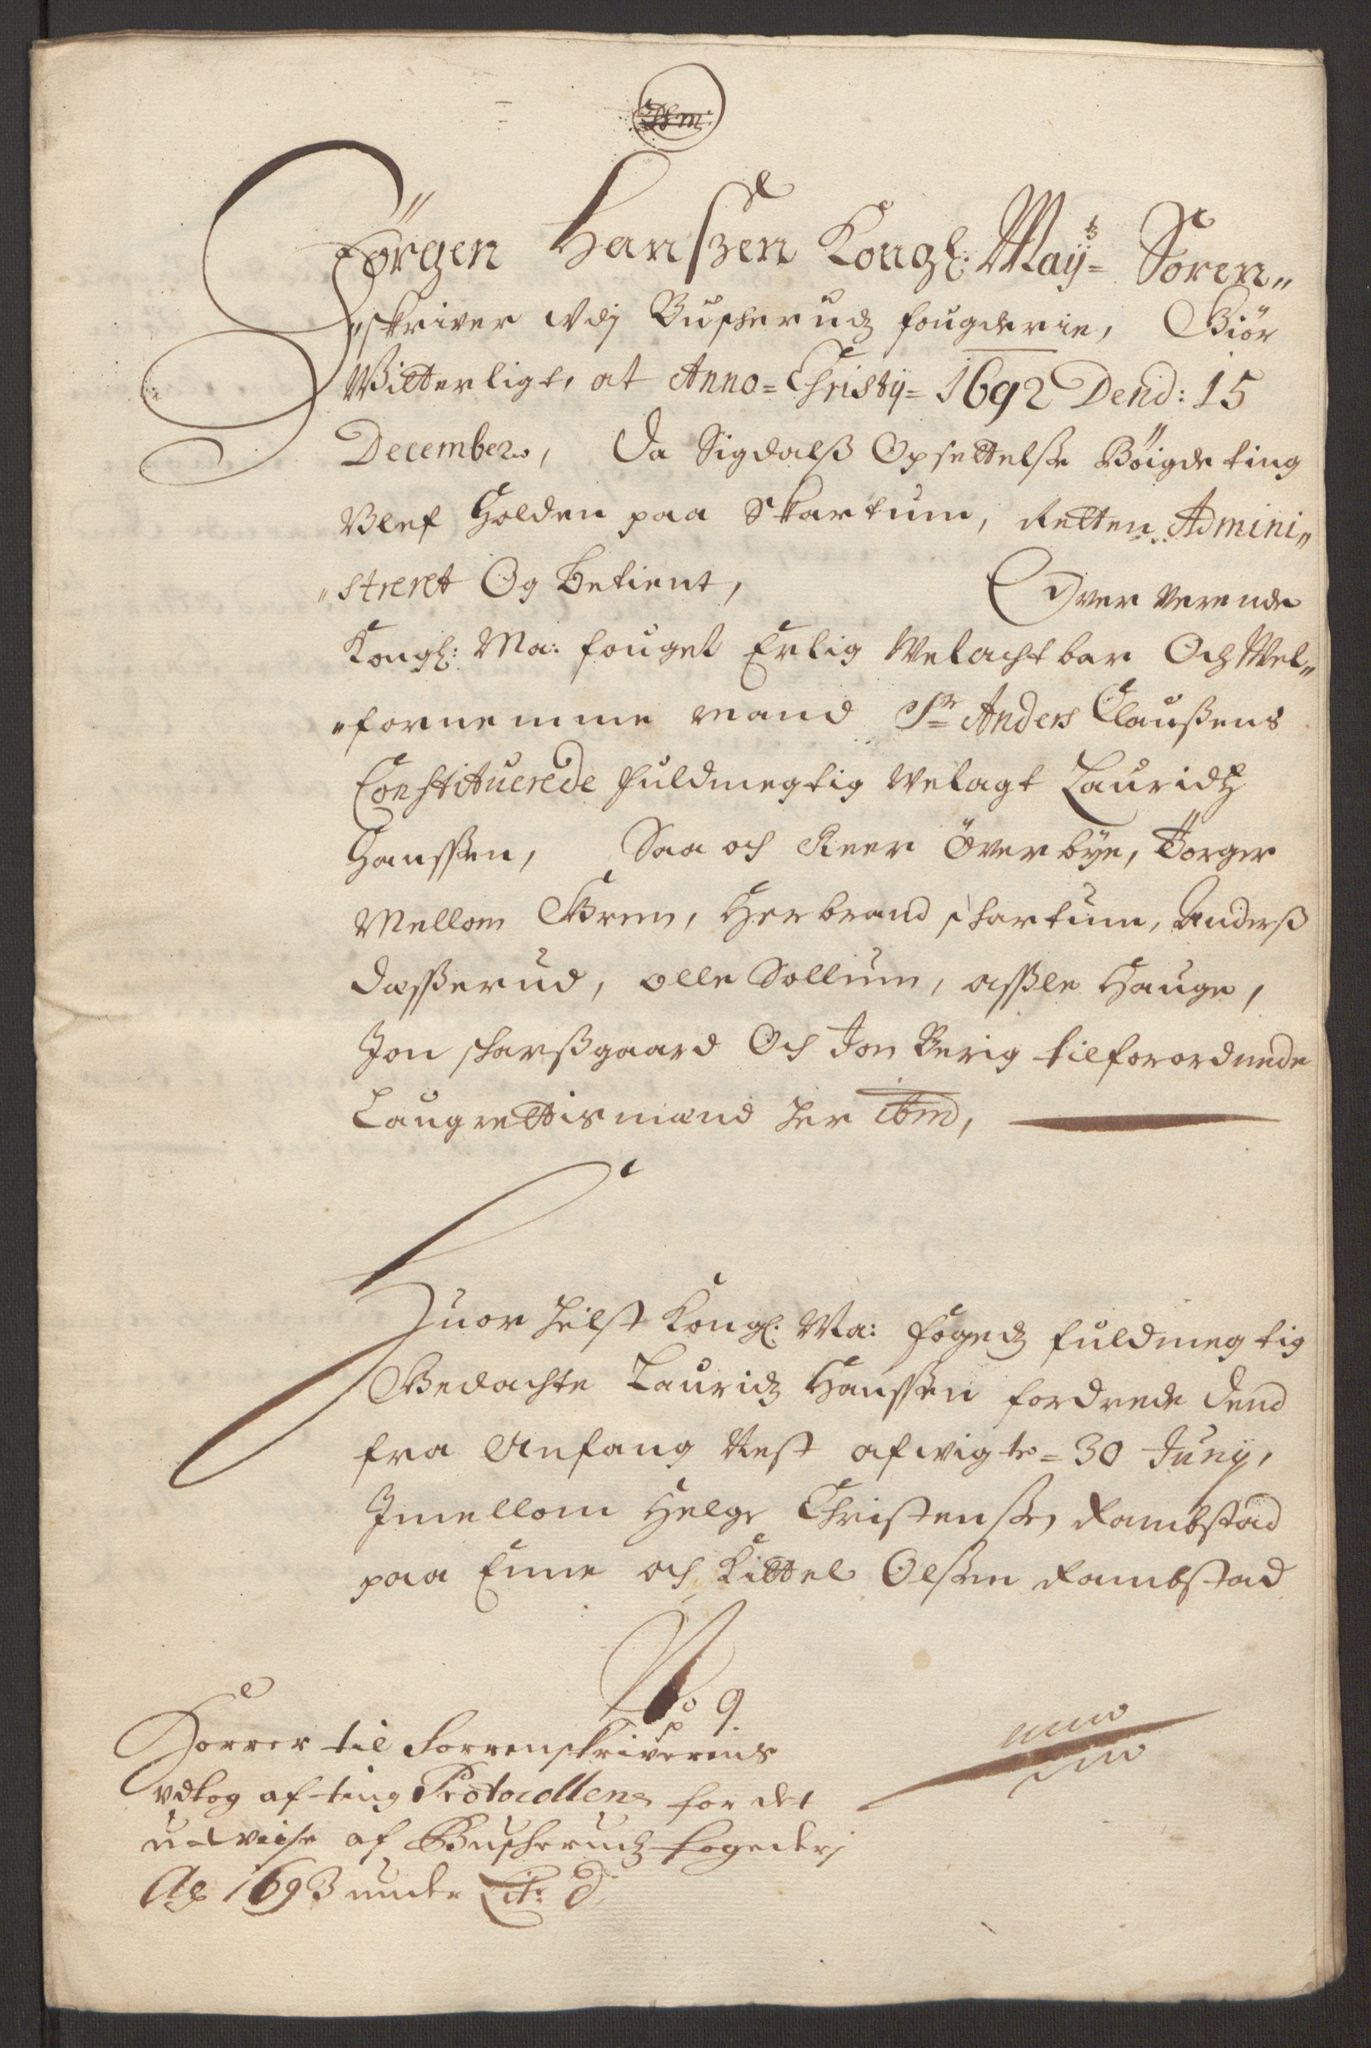 Jørgen Hanszen Kongl: Mayts Soren„
„skriver vdj Buscherudz fougderie, Giör
Witterligt, at Anno=Christy=1692 Dend: 15
December, Da Sigdalß Opsettelße Böigde ting
Blef Holden paa Skartum, Retten Admini„
„streret Og betient, Over Verende
Kongl: Ma: fouget Erlig Welachtbar Och Wel„
„fornemme mand Sr Anders Claußens
Constituerede fuldmegtig Velagt Lauridtz
Hanssen, Saa och Peer Överbÿe, Törger
Mellom Bren, Herbrand schartum, Anderß
Daßerud, olle Sollum, aßle Hauge,
Jon scharßgaard Och Jon Berig tilforordnede
Laugrettismænd her ibm,
Huor helst Kongl. Ma: fogedz fuldmegtig
Bedachte Lauridz Hanssen fordrede Dend
fra Anfang Rest afvigte=30 Juny,
Jmellom Helge Christenßen Rambstad
paa Eene och Kittel Olßen Rambstad
No 9.
Hörrer til Sorrenskriverens
vdtog af ting Protocollen for det
udviise af Buscherudz fogederj
Ao 1693 under Lit: D.